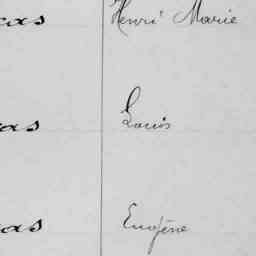 as Henri Marie
as Louis
as Eugène